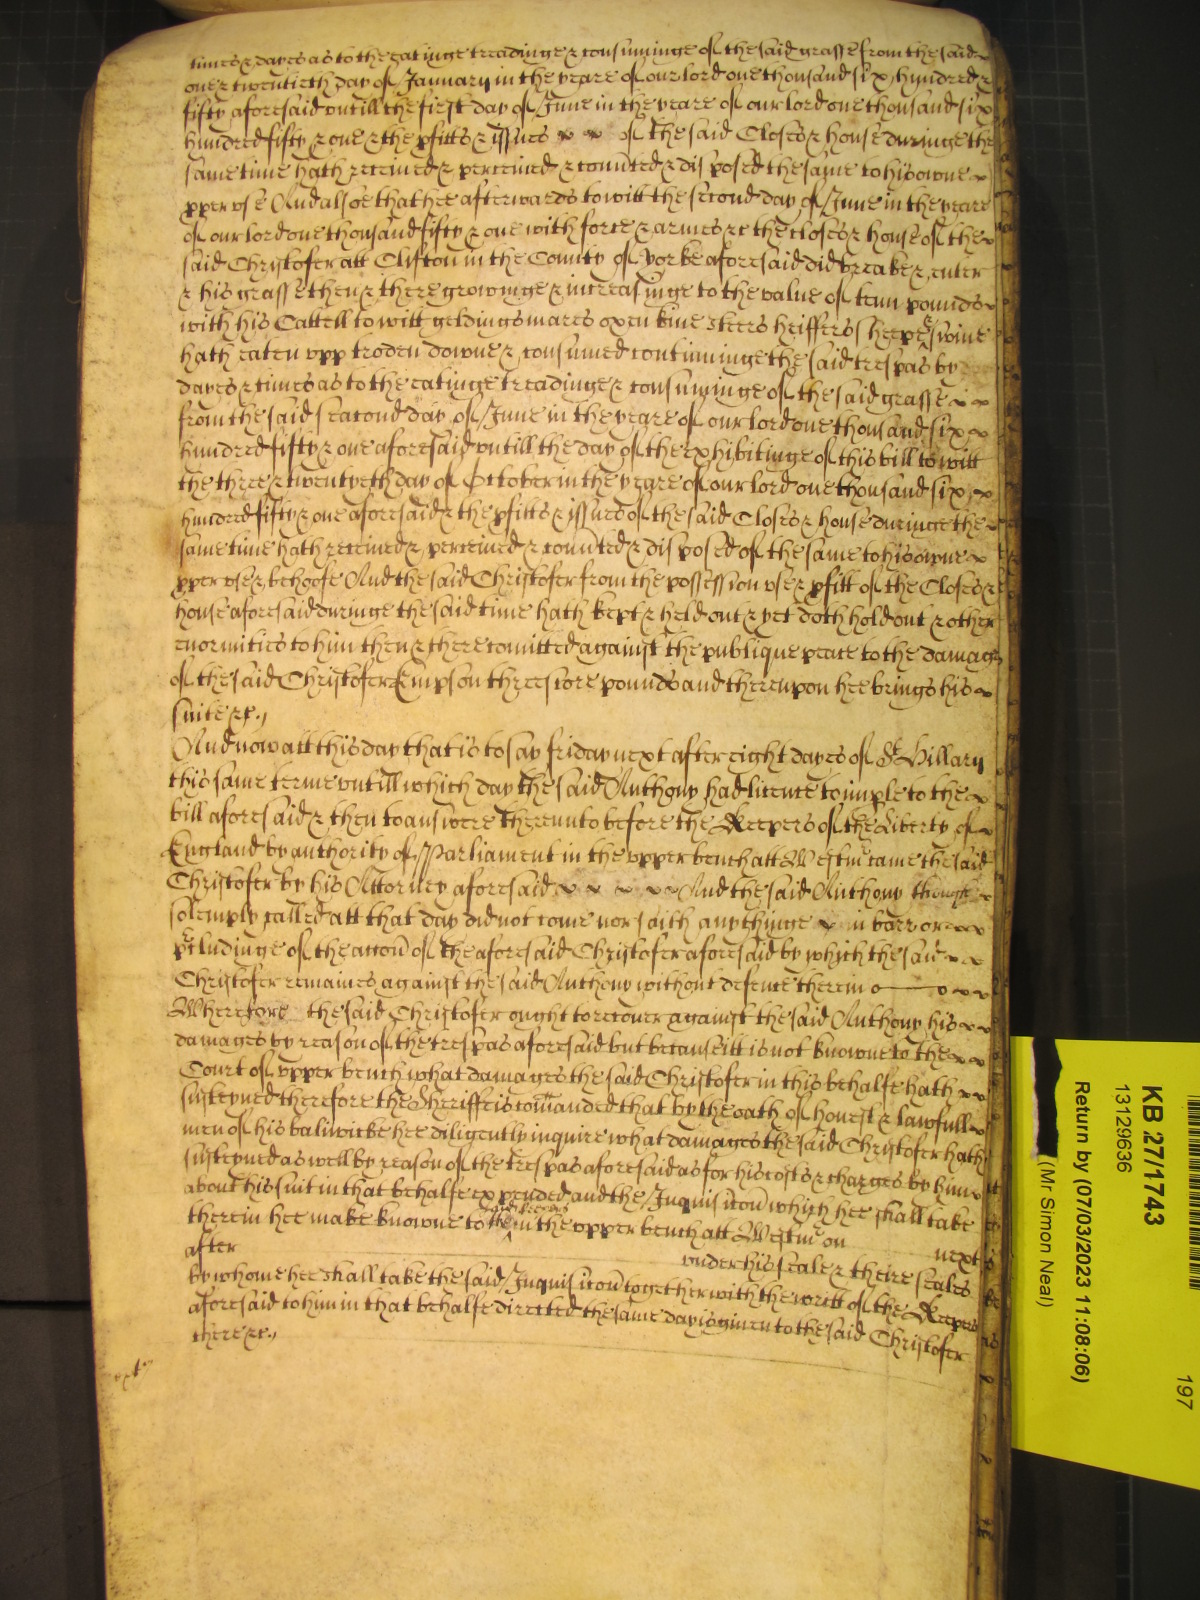 times & dayes as to the eatinge treadinge & consuminge of the said grasse from the said
one & twentieth day of January in the yeare of our lord one thousand six hundred &
fifty aforesaid untill the first day of June in the yeare of our lord one thousand six
hundred fifty & one & the pfitts & issues of the said Closes & house duringe the
same time hath received & perceived & convted & disposed the same to his owne
pper use And alsoe that hee afterwards to witt the second day of June in the yeare
of our lord one thousand fifty & one with force & armes &c the closes & house of the
said Christofer att Clifton in the County of Yorke aforesaid did breake & enter
& his grasse then & there growinge & increasinge to the value of tenn pounds
with his Cattell to witt geldings mares oxen kine steers heiffers sheepe & swine
hath eaten upp troden downe & consumed continuinge the said trespas by
dayes & times as to the eatinge treadinge & consuminge of the said grasse
from the said seacond day of June in the yeare of our lord one thousand six
hundred fifty & one aforesaid untill the day of the exhibitinge of this bill to witt
the three & twentyeth day of October in the yeare of our lord one thousand six
hundred fifty & one aforesaid & the pfitts & issues of the said Closes & house duringe the
same time hath received & perceived & convted & disposed of the same to his owne
pper use & behoofe And the said Christofer from the possession use & pfitt of the Closes &
house aforesaid duringe the said time hath kept & held out & yet doth hold out & other
enormities to him then & there comitted against the publique peace to the damage
of the said Christofer Empson threescore pounds and thereupon hee brings his
suite &c.
And now att this day that is to say friday next after eight dayes of St Hillary
this same terme untill which day the said Anthony had licence to imple to the
bill aforesaid & then to answere thereunto before the Keepers of the Liberty of
England by authority of Parliament in the upper bench att Westmr came the said
Christofer by his Attorney aforesaid And the said Anthony though
solemply called att that day did not come nor saith anythinge in barr or
pcludinge of the accon of the aforesaid Christofer aforesaid by which the said
Christofer remaines against the said Anthony without defence therein
Wherefore the said Christofer ought to recover against the said Anthony his
damages by reason of the trespas aforesaid but because itt is not knowne to the
Court of upper bench what damages the said Christofer in this behalfe hath
susteyned therefore the Sheriffe is comanded that by the oath of honest & lawfull
men of his baliwicke hee diligently inquire what damages the said Christofer hath
susteyned as well by reason of the trespas aforesaid as for his costs & charges by him
about his suit in that behalfe expended and the Inquisicon which hee shall take
therein hee make knowne to the said Keepers in the upper bench att Westmr on next
after under his seale & theire seales
by whome hee shall take the said Inquisicon together with the writt of the Keepers
aforesaid to him in that behalfe directed the same day is given to the said Christofer
there &c.
KB 27/1743
13129636
Return by (07/03/2023 11:08:06)
(Mr Simon Neal)
197